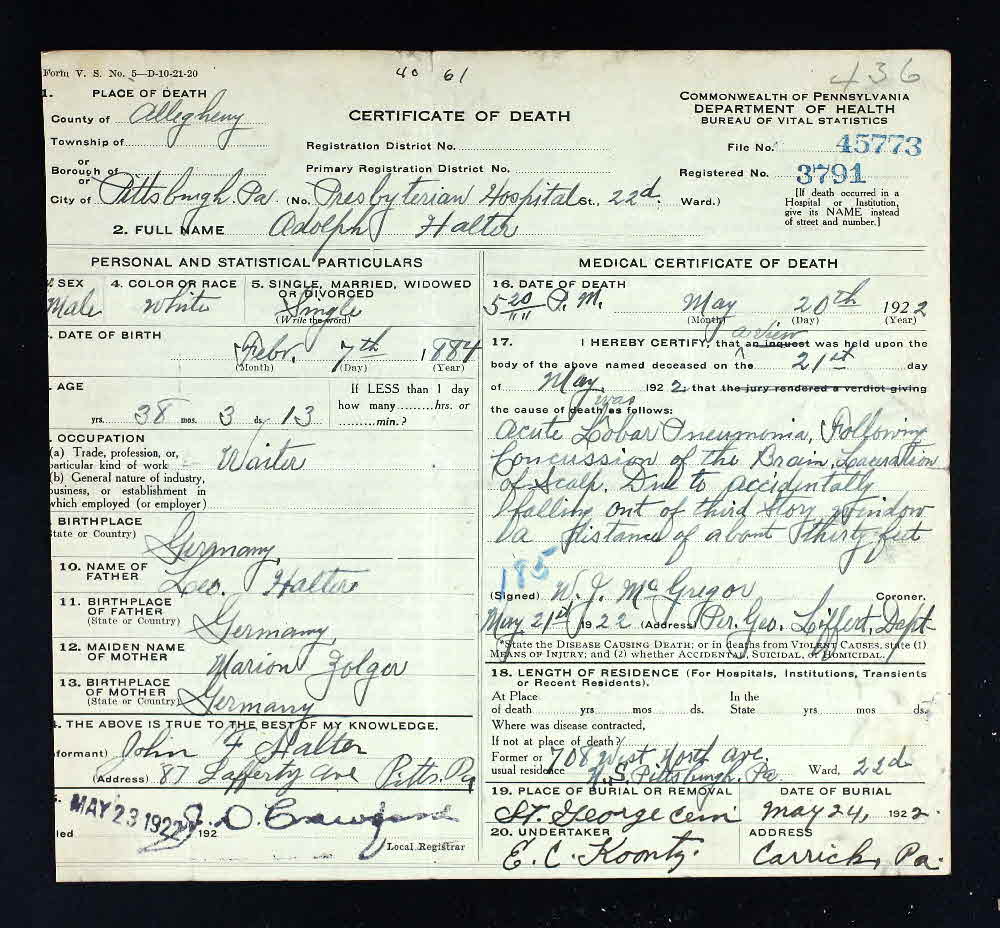 Form V. S. No. 5—D-10-21-20
40 61
436
1. PLACE OF DEATH
County of Allegheny
Township of
or
Borough of
or
City of Pittsburgh. Pa (No. Presbyterian Hospital St., 22d. Ward.)
CERTIFICATE OF DEATH
Registration District No.
Primary Registration District No.
COMMONWEALTH OF PENNSYLVANIA
DEPARTMENT OF HEALTH
BUREAU OF VITAL STATISTICS
File No. 45773
Registered No. 3791
[If death occurred in a
Hospital or Institution,
give its NAME instead
of street and number.]
2. FULL NAME Adolph Halter
PERSONAL AND STATISTICAL PARTICULARS
SEX
Male
4. COLOR OR RACE
White
5. SINGLE, MARRIED, WIDOWED
OR DIVORCED
Single
(Write the word)
. DATE OF BIRTH
Febr. 7th 1884
(Month) (Day) (Year)
. AGE
yrs. 38 mos. 3 ds. 13
If LESS than 1 day
how many.........hrs. or
.........min.?
. OCCUPATION
(a) Trade, profession, or,
particular kind of work
Waiter
(b) General nature of industry,
business, or establishment in
which employed (or employer)
. BIRTHPLACE
State or Country)
Germany,
10. NAME OF
FATHER
Leo. Halter
11. BIRTHPLACE
OF FATHER
(State or Country)
Germany,
12. MAIDEN NAME
OF MOTHER
Marion Zolger
13. BIRTHPLACE
OF MOTHER
(State or Country)
Germany
. THE ABOVE IS TRUE TO THE BEST OF MY KNOWLEDGE.
formant) John F Halter
(Address) 87 Lafferty ave Pitts. Pa
MAY 23 1922
led 192
Local Registrar
MEDICAL CERTIFICATE OF DEATH
16. DATE OF DEATH
5 20 P. M. May 20th 1922
(Month) (Day) (Year)
17. I HEREBY CERTIFY, that a view an inquest was held upon the
body of the above named deceased on the 21st day
of May, 1922, that the jury rendered a verdict giving
the cause of death was as follows:
Acute Lobar Pneumonia, Following
Concussion of the Brain, Laceration
of Scalp. Due to accidentally
falling out of third story window
a distance of about thirty feet
185
(Signed) W. J. McGregor Coroner.
May 21st 1922 (Address) Per. Geo. Liffert, Dept-
*State the DISEASE CAUSING DEATH; or in deaths from VIOLENT CAUSES, state (1)
MEANS OF INJURY; and (2) whether ACCIDENTAL, SUICIDAL, or HOMICIDAL.
18. LENGTH OF RESIDENCE (For Hospitals, Institutions, Transients
or Recent Residents).
At Place
of death yrs. mos ds.
In the
State yrs mos ds.
Where was disease contracted,
If not at place of death?
Former or
usual residence 708 West North ave.
N. S. Pittsburgh. Pa. Ward, 22d
19. PLACE OF BURIAL OR REMOVAL
St. George cem
DATE OF BURIAL
May 24, 1922.
20. UNDERTAKER
E. C. Koontz.
ADDRESS
Carrick, Pa.